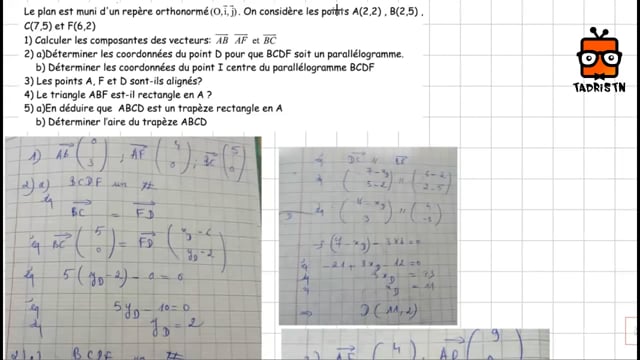 Le plan est muni d'un repère orthonormé (O,i⃗,j⃗). On considère les points A(2,2) , B(2,5) ,
C(7,5) et F(6,2)
1) Calculer les composantes des vecteurs: AB⃗ AF⃗ et BC⃗
2) a)Déterminer les coordonnées du point D pour que BCDF soit un parallélogramme.
b) Déterminer les coordonnées du point I centre du parallélogramme BCDF
3) Les points A, F et D sont-ils alignés?
4) Le triangle ABF est-il rectangle en A ?
5) a)En déduire que ABCD est un trapèze rectangle en A
b) Déterminer l'aire du trapèze ABCD
TADRIS TN
1) AB⃗ (0 3) ; AF⃗ (4 0) ; BC⃗ (5 0)
2) a) BCDF un #
BC⃗ = FD⃗
BC⃗ (5 0) = FD⃗ (x_D-6 y_D-2)
5(y_D-2) - 0 = 0
5y_D - 10 = 0
y_D = 2
BCDF
-3(7-x_D) - 3x4 = 0
-21 + 3x_D - 12 = 0
3x_D = 33
x_D = 11
D(11,2)